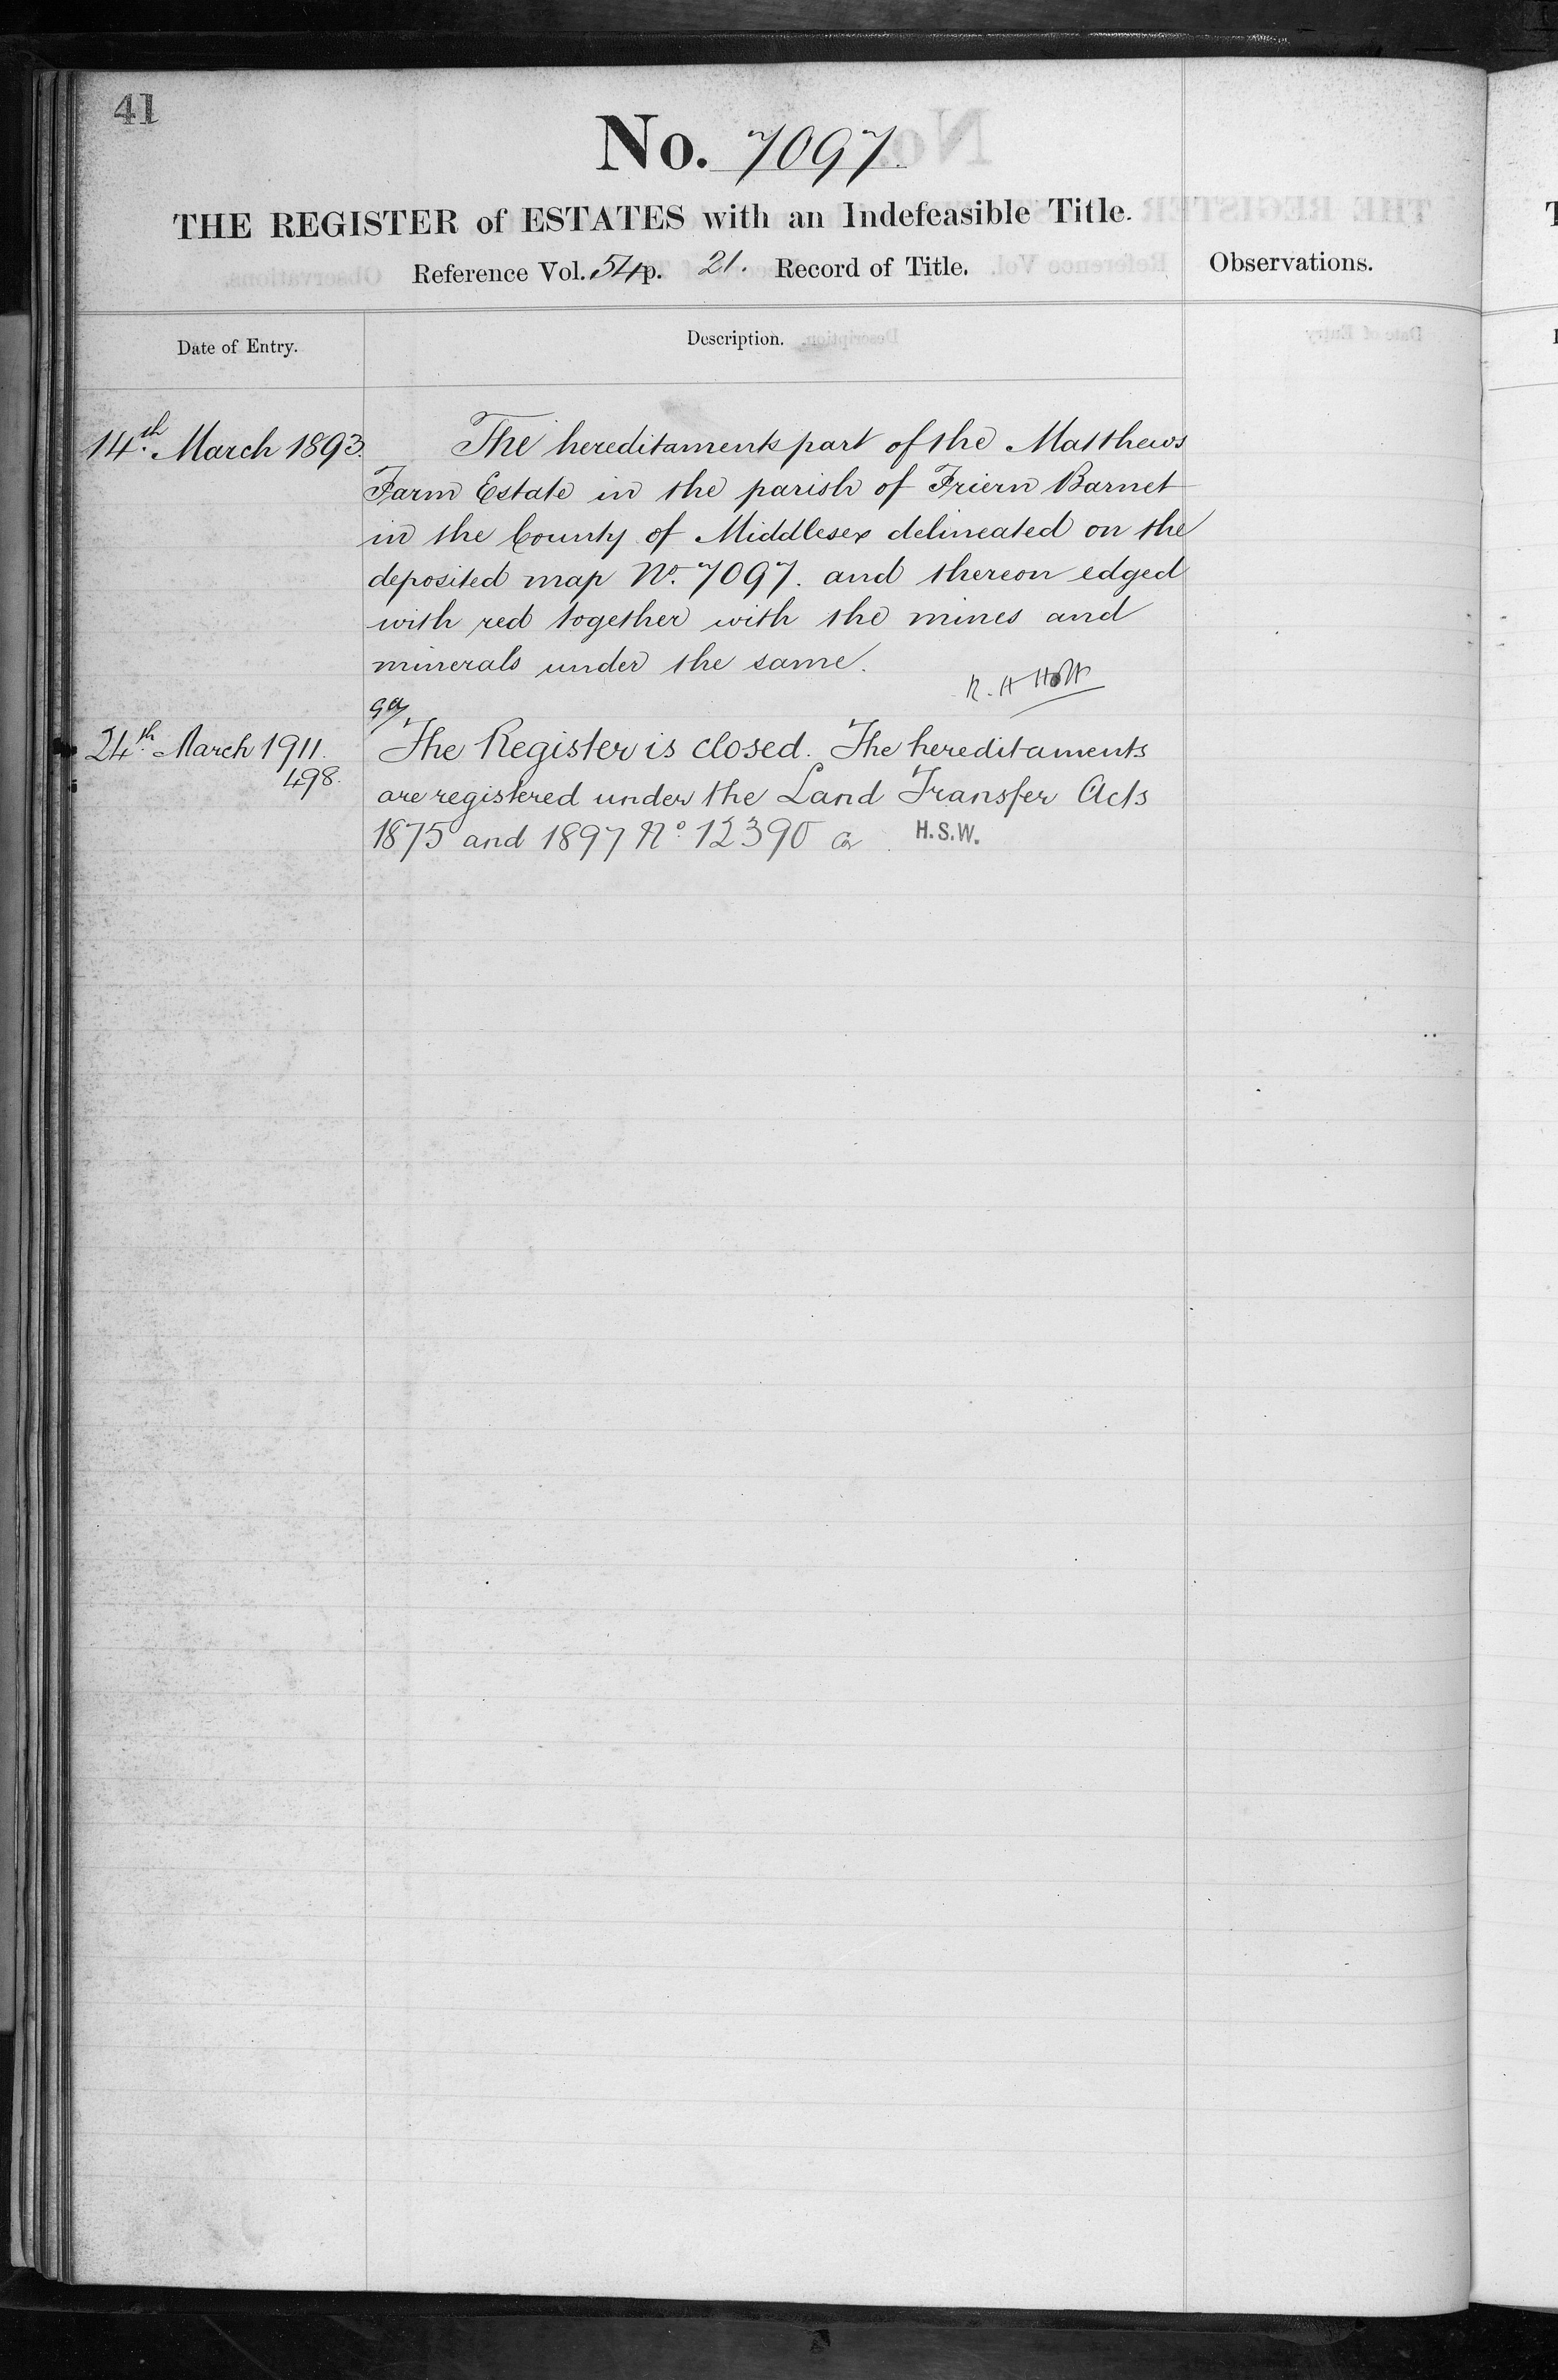 41
No. 7097.
THE REGISTER of ESTATES with an Indefeasible Title.
Reference Vol. 54 p. 21. Record of Title.
Observations.
Date of Entry.
Description.
14th. March 1893.
The hereditaments part of the Matthews
Farm Estate in the parish of Friern Barnet
in the County of Middlesex delineated on the
deposited map No. 7097. and thereon edged
with red together with the mines and
minerals under the same.
R. H Holt
24th. March 1911.
498.
The Register is closed. The hereditaments
are registered under the Land Transfer Acts
1875 and 1897 No 12390
H.S.W.